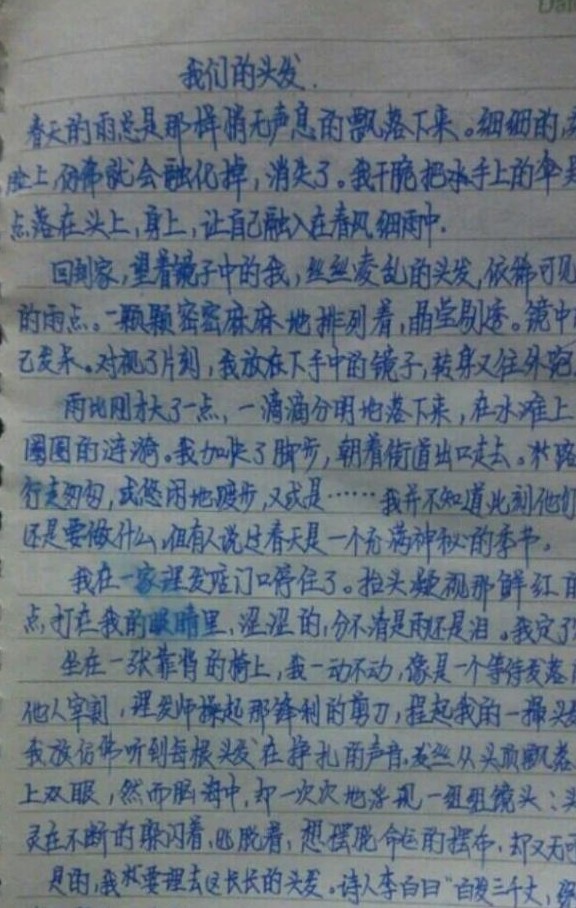 Dai
我们的头发.
春天的雨总是那样悄无声息的飘落下来。细细的,
脸上,仿佛就会融化掉,消失了。我干脆把手上的伞
点落在头上,身上,让自己融入在春风细雨中.
回到家,望着镜子中的我,丝丝凌乱的头发,依稀可见
的雨点。一颗颗密密麻麻地排列着,晶莹剔透。镜中
已发呆。对视了片刻,我放在下手中的镜子,转身又往外跑
雨比刚才大了一点,一滴滴分明地落下来,在水滩上
圈圈的涟漪。我加快了脚步,朝着街道出口走去。
行走匆匆,或悠闲地踱步,又或是……我并不知道此刻他们
还是要做什么,但有人说过春天是一个充满神秘的季节。
我在一家理发店门口停住了。抬头凝视那鲜红
点,打在我的眼睛里,涩涩的,分不清是雨还是泪。我定了
坐在一张靠背的椅上,我一动不动,像是一个等待发落
他人宰割,理发师操起那锋利的剪刀,捏起我的一撮头
我放仿佛听到每根头发在挣扎的声音.发丝从头顶飘落
上双眼,然而脑海中,却一次次地浮现一组组镜头:
灵在不断的躲闪着,逃脱着,想摆脱命运的摆布,却又无可
是的,我要理去这长长的头发。诗人李白曰“白发三千丈,